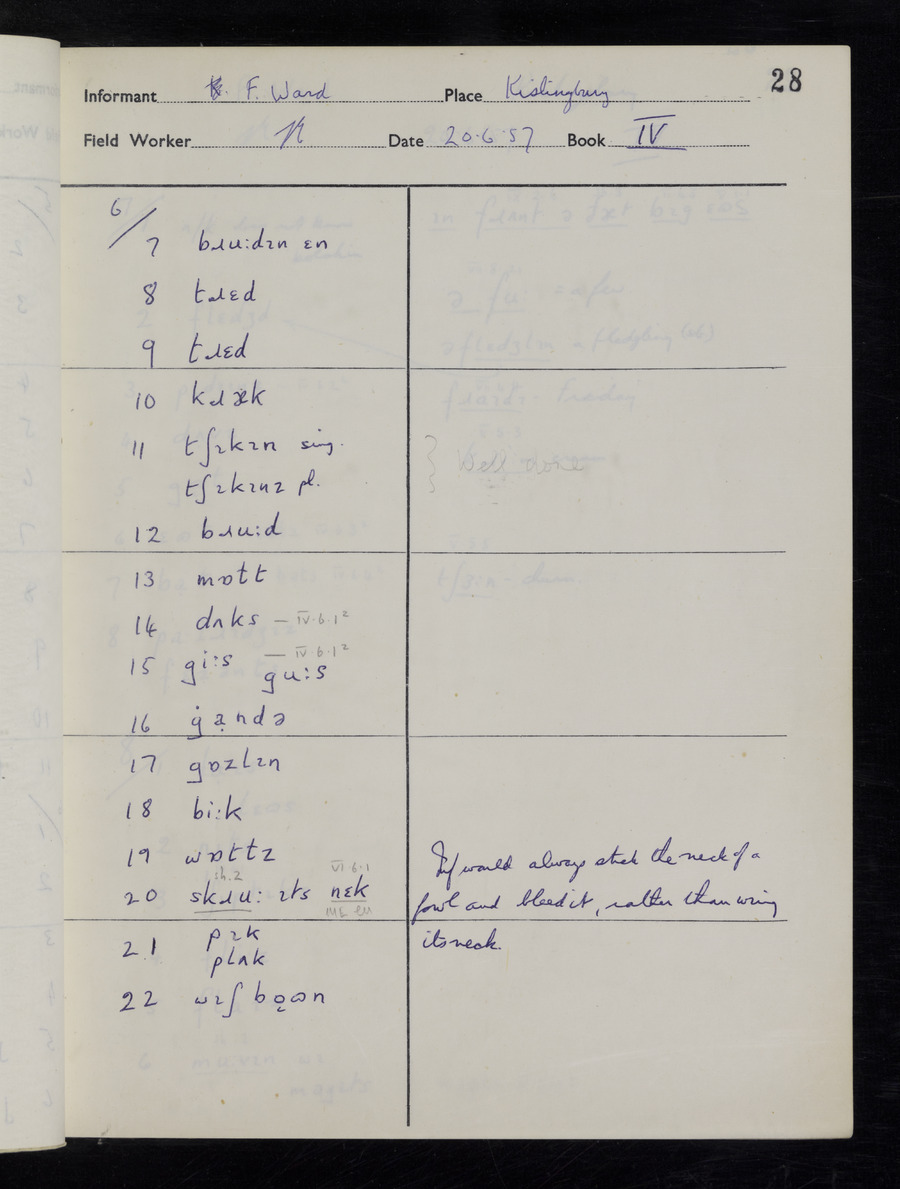 28
Informant F. Ward Place Kislingbury
Field Worker Date 20.6.57 Book IV
6/
7 bɹuːdɪn ɛn
8 tɹɛd
9 tɹɛd
10 kɹæk
11 tʃɪkɪn sing.
tʃɪkɪnz pl.
Well done
12 bɹuːd
13 mɒtt
14 dʌks – IV.6.1²
15 giːs – IV.6.1²
guːs
16 ga̩ndə
17 gɒzlɪn
18 biːk
19 wɒttz
sh.2 VI.6.1
20 skɹuː ɪts nɛk
Inf would always stick the neck of a
fowl and bleed it, rather than wring
its neck.
21 pɪk
plʌk
22 wɪʃ bo̜ɷn